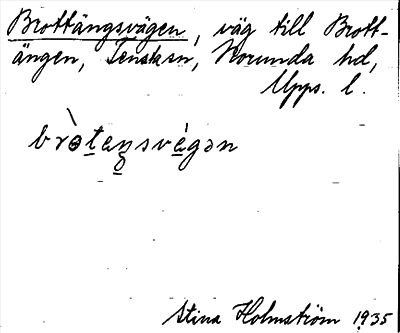 Brottängsvägen, väg till Brott-
ängen, Tensta sn, Norunda hd,
Upps. l.
bròt̲eŋ̲své̲gən
Stina Holmström 1935